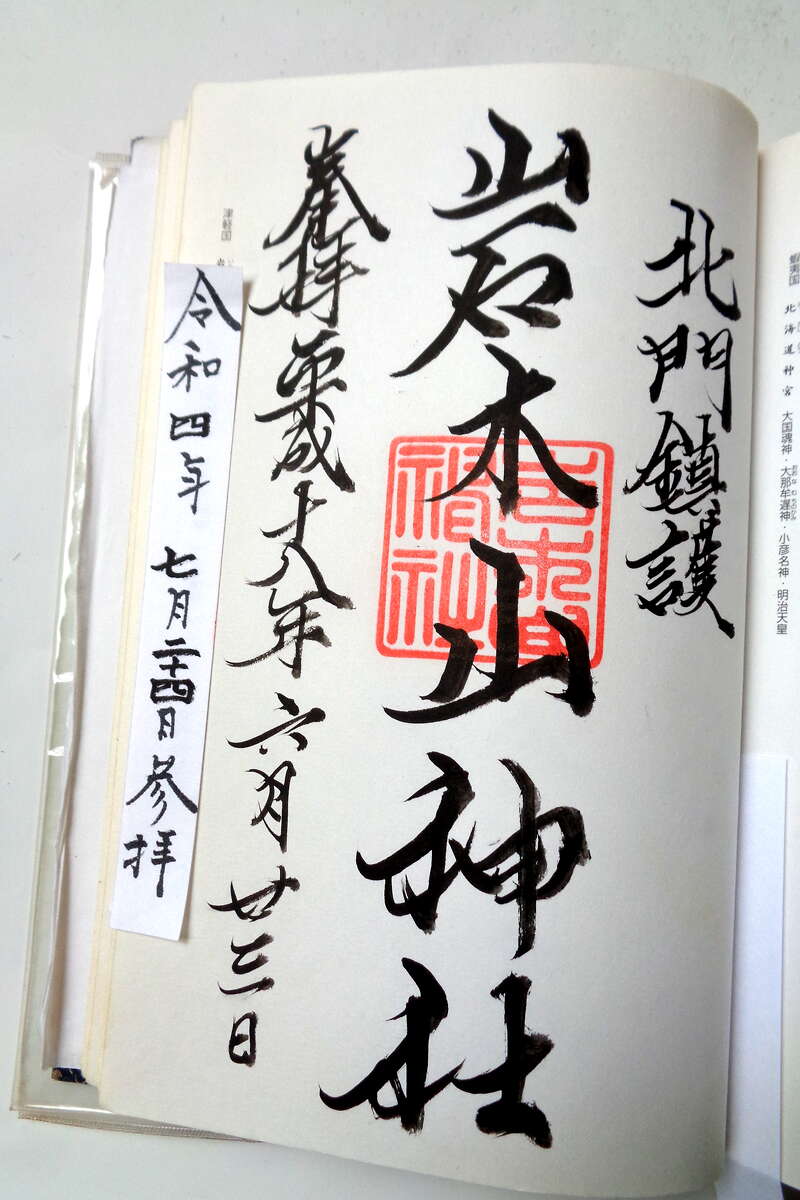 蝦夷国 北海道神宮 大国魂神・大那牟遅神・小彦名神・明治天皇
北門鎮護
岩木山神社
奉拝 平成十八年 六月 廿三日
津軽国
令和四年 七月二十四日 参拝